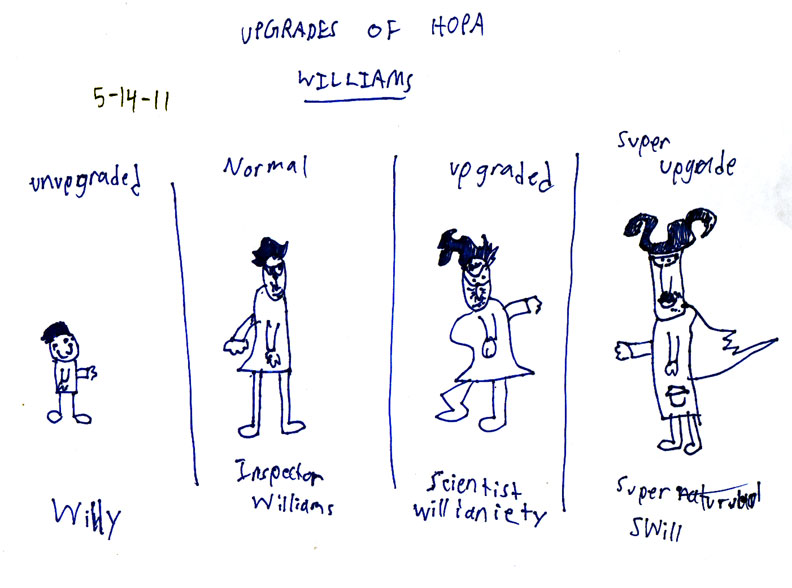 UPGRADES OF HOPA
WILLIAMS
5-14-11
unupgraded
Normal
upgraded
super
upgrade
Willy
Inspector
Williams
Scientist
Willianiety
Super
SWill